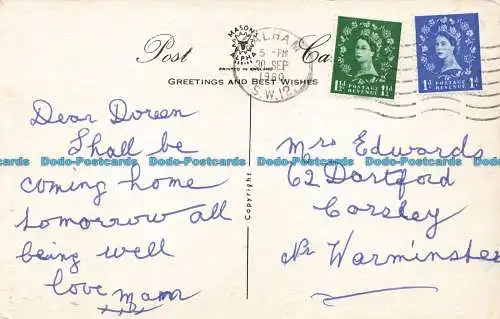 Post Card
MASONS
PRINTED IN ENGLAND
GREETINGS AND BEST WISHES
BALHAM
5 - PM
30 SEP
1960
S.W.12
POSTAGE
REVENUE
1½d 1½d
POSTAGE
REVENUE
1d 1d
Dear Doreen
Shall be
coming home
tomorrow all
being well
love Mam
xxx
Copyright
Mrs Edwards
62 Dartford
Corsley
Nr Warminster
Dodo-Postcards Dodo-Postcards Dodo-Postcards Dodo-Postcards